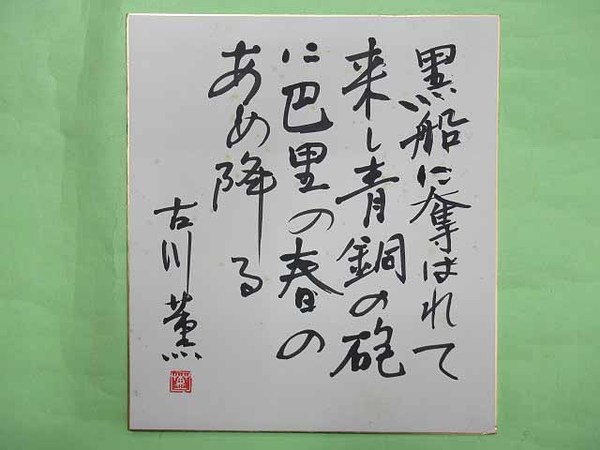 黒船に奪はれて
来し青銅の砲
に巴里の春の
あめ降る
古川薫